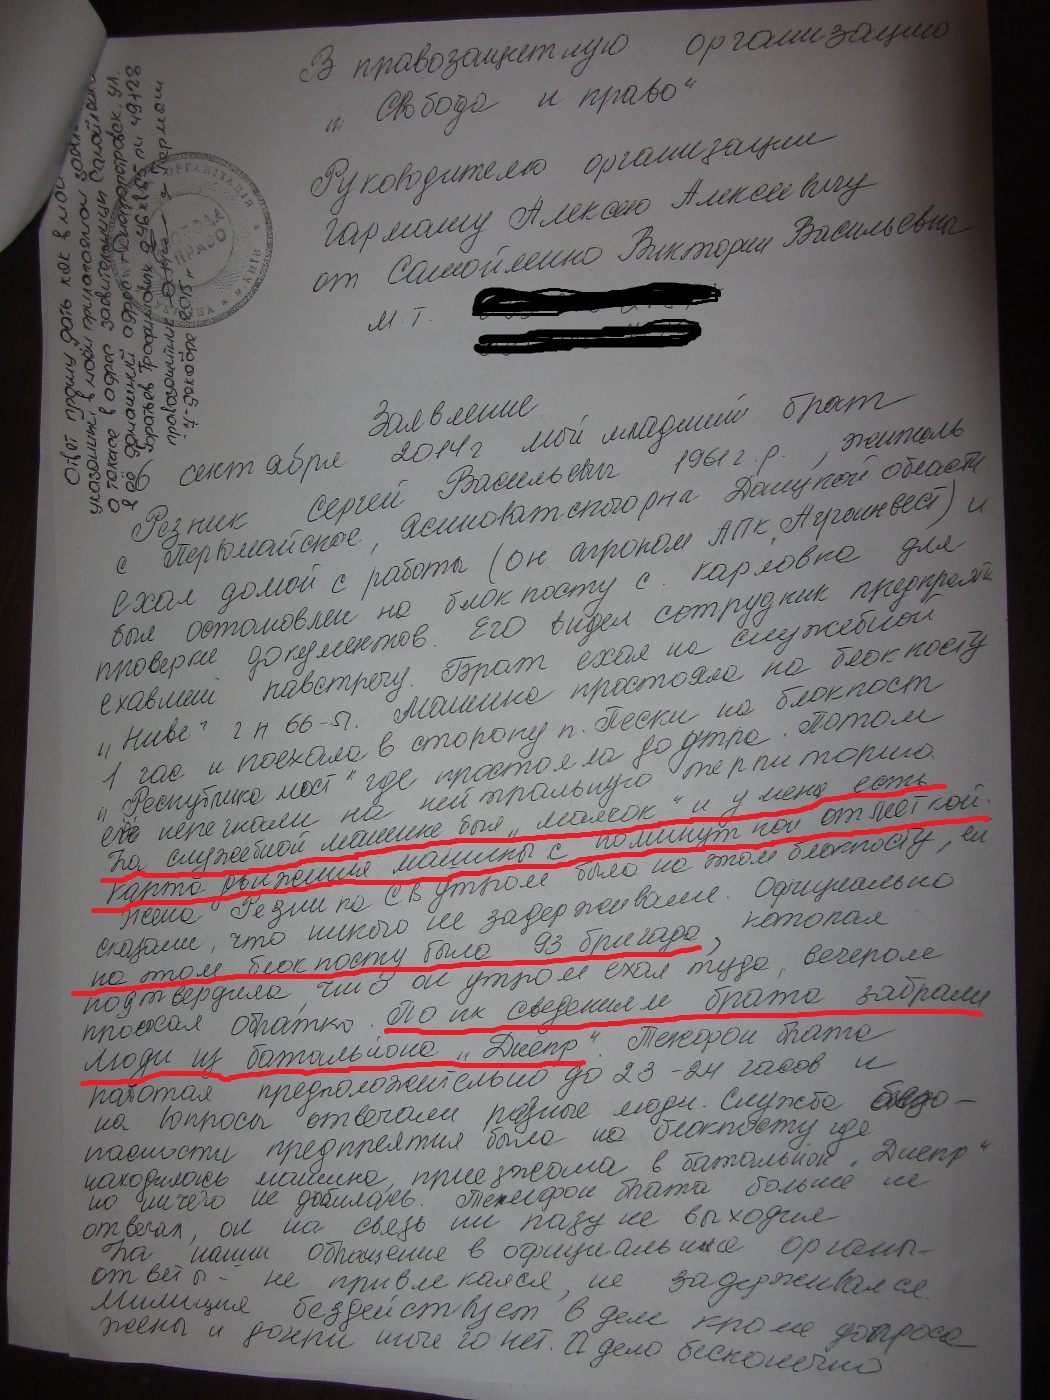 В правозащетную организацию
„ Свобода и право"
Руководителю организации
Гармашу Алексею Алексеевичу
от Самойленко Виктории Васильевна
м.т.
Заявление
6 сентября 2014г мой младший брат
Резник Сергей Васильевич 1961г.р., житель
с Первомайское, Ясиноватского р на Донецкой области
ехал домой с работы (он агроном АПК „Агроинвест) и
был остановлен на блокпосту с. Карловка для
проверки документов. Его видел сотрудник предприятия
ехавший навстречу. Брат ехал на служебной
„Ниве" г н 66-51. Машина простояла на блокпосту
1 час и поехала в сторону п. Пески на блокпост
„Республика мост" где простояла до утра. Потом
её перегнали на нейтральную территорию.
На служебной машине был „маячок" и у меня есть
карта движения машины с поминутной отметкой.
Жена Резника С В утром была на этом блокпосту, ей
сказали, что никого не задерживали. Официально
на этом блокпосту была 93 бригада, которая
подтвердила, что он утром ехал туда, вечером
проехал обратно. По их сведениям брата забрали
люди из батальйона „Днепр". Телефон брата
работал предположительно до 23-24 часов и
на вопросы отвечали разные люди. Служба безо-
пасности предприятия была на блокпосту где
находилась машина, приезжала в батальйон „Днепр"
но ничего не добилась. Телефон брата больше не
отвечал, он на связь ни разу не выходил
На наши обращение в официальные органы-
ответы- не привлекался, не задерживался.
Милиция бездействует в деле кроме допроса
жены и дочери ничего нет. А дело бесконечно
Ответ прошу дать как в мой
указанный в моём прилагаемом
а также в адрес заявительницы Самойленко
в её домашний адрес: г. Днепропетровск, ул.
Братьев Трофимовых
правозащитник Гармаш
ОРГАНІЗАЦІЯ
ПРАВО
УКРАЇНА